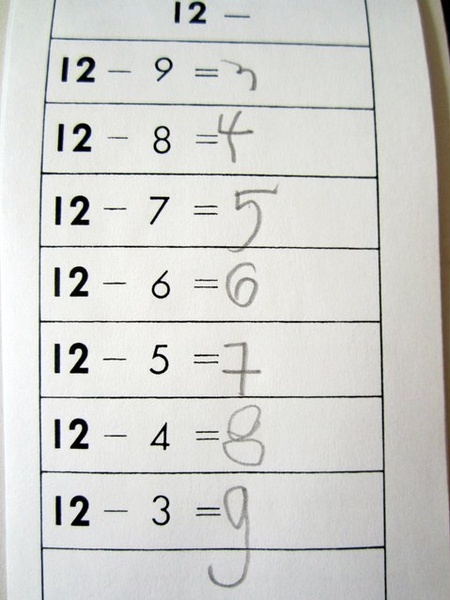 12 –
12 – 9 = 3
12 – 8 = 4
12 – 7 = 5
12 – 6 = 6
12 – 5 = 7
12 – 4 = 8
12 – 3 = 9